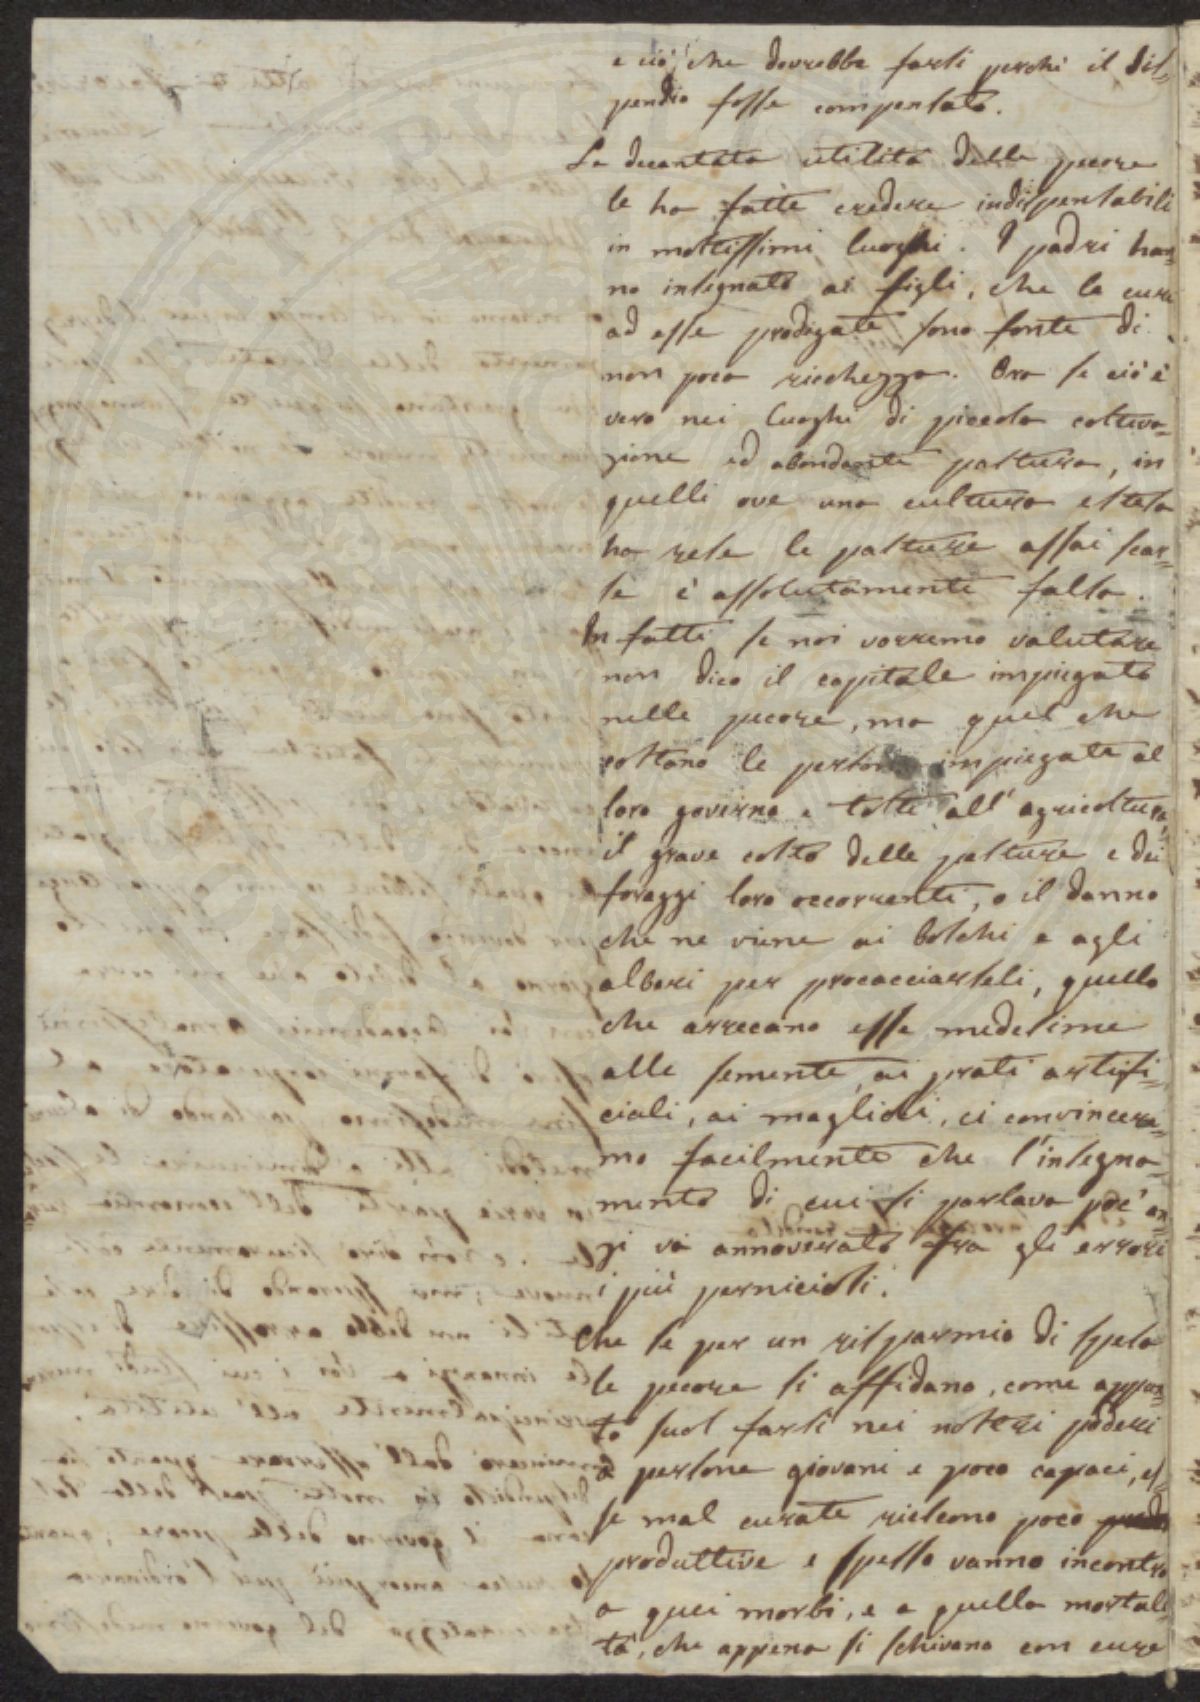 e ciò che dovrebbe farsi perchè il dis=
pendio fosse compensato.
La decantata utilità delle pecore
le ha fatte credere indispensabili
in moltissimi luoghi. I padri han=
no insegnato ai figli, che le cure
ad esse prodigate sono fonte di
non poca ricchezza. Ora se ciò è
vero nei luoghi di piccola coltiva=
zione ed abondante pastura, in
quelli ove una cultura estesa
ha rese le pasture assai scar=
se è assolutamente falso.
In fatti se noi vorremo valutare
non dico il capitale impiegato
nelle pecore, ma quel che
costano le persone impiegate al
loro governo e tolte all'agricoltura,
il grave costo delle pasture e dei
foraggi loro occorrenti, o il danno
che ne viene ai boschi e agli
alberi per procacciarseli, quello
che arrecano esse medesime
alle semente, ai prati artifi=
ciali, ai maglioli, ci convincere=
mo facilmente che l'insegna=
mento di cui si parlava poc'an=
zi va annoverato fra gli errori
i più perniciosi.
Che se per un risparmio di spesa
le pecore si affidano, come appun=
to suol farsi nei nostri poderi
a persone giovani e poco capaci, es=
se mal curate riescono poco
produttive e spesso vanno incontro
a quei morbi, e a quella mortali=
tà, che appena si schivano con cure